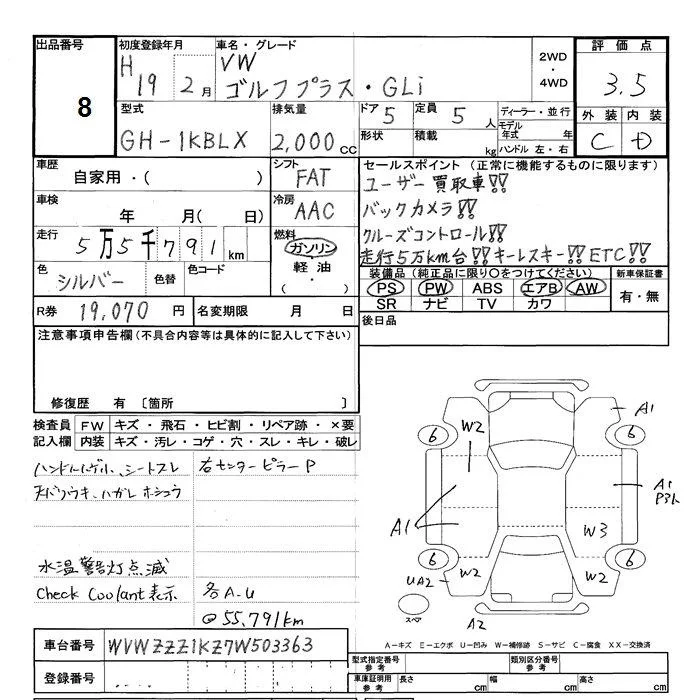 出品番号
8
初度登録年月
H 19 2月
車名・グレード
VW
ゴルフプラス・GLi
2WD
・
4WD
評価点
3.5
外装 内装
C D
型式
GH-1KBLX
排気量
2,000 cc
ドア 5
定員 5 人
形状
積載 kg
ディーラー・並行
モデル年式 年
ハンドル 左・右
車歴
自家用・( )
シフト
FAT
車検
年 月( 日)
冷房
AAC
走行
5万5千791 km
燃料
ガソリン
軽油
( ・ )
色
シルバー
色替
色コード
R券 19,070 円
名変期限 月 日
セールスポイント (正常に機能するものに限ります)
ユーザー買取車!!
バックカメラ!!
クルーズコントロール!!
走行5万km台!!キーレスキー!!ETC!!
装備品 (純正品に限り○をつけてください)
PS PW ABS エアB AW
SR ナビ TV カワ
新車保証書
有・無
後日品
注意事項申告欄 (不具合内容等は具体的に記入して下さい)
修復歴 有 〔箇所 〕
検査員記入欄
FW キズ・飛石・ヒビ割・リペア跡・×要
内装 キズ・汚レ・コゲ・穴・スレ・キレ・破レ
シートスレ
右センターピラーP
水温警告灯点滅
Check Coolant表示
各A-U
@55,791km
車台番号 WVWZZZ1KZ7W503363
登録番号
A1
6
W2
6
A1
A1
P3ト
W3
6
6
UA2
W2
W2
スペア
A2
A-キズ E-エクボ U-凹み W-補修跡 S-サビ C-腐食 XX-交換済
型式指定番号 参考
類別区分番号 参考
車庫証明用 参考
長さ cm
幅 cm
高さ cm